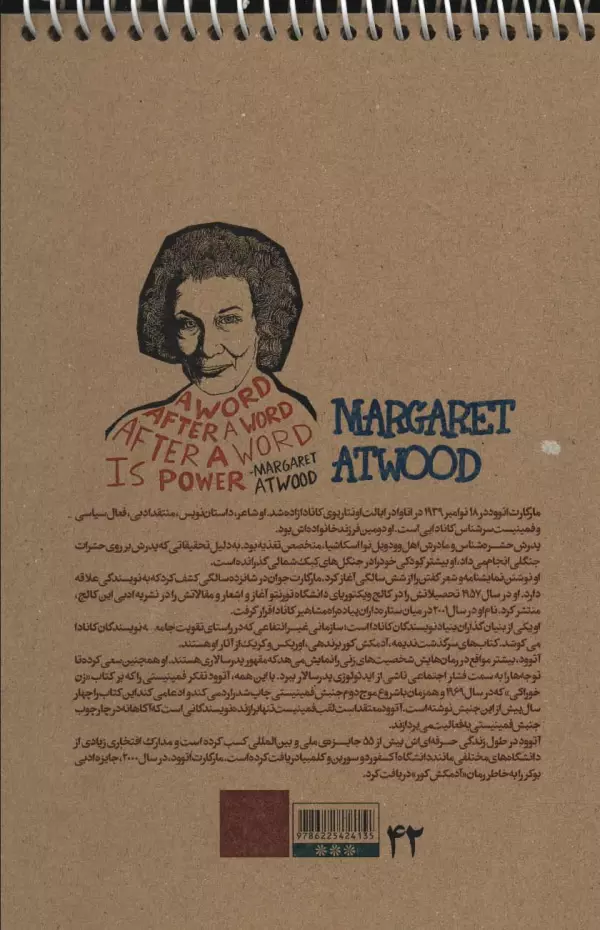 A WORD
AFTER A WORD
AFTER A WORD
IS POWER
-MARGARET
ATWOOD
MARGARET
ATWOOD
مارگارت اتوود در ۱۸ نوامبر ۱۹۳۹ در اتاوا در ایالت اونتاریوی کانادا زاده شد. او شاعر، داستان‌نویس، منتقد ادبی، فعال سیاسی
و فمینیست سرشناس کانادایی است. او دومین فرزند خانواده‌اش بود.
پدرش حشره‌شناس و مادرش اهل وودویل نوا اسکاشیا، متخصص تغذیه بود. به دلیل تحقیقاتی که پدرش بر روی حشرات
جنگلی انجام می‌داد، او بیشتر کودکی خود را در جنگل‌های کِبِک شمالی گذرانده است.
او نوشتن نمایشنامه و شعر گفتن را از شش سالگی آغاز کرد. مارگارت جوان در شانزده سالگی کشف کرد که به نویسندگی علاقه
دارد. او در سال ۱۹۵۷ تحصیلاتش را در کالج ویکتوریای دانشگاه تورنتو آغاز و اشعار و مقالاتش را در نشریه ادبی این کالج،
منتشر کرد. نام او در سال ۲۰۰۱ در میان ستاره‌داران پیاده‌راه مشاهیر کانادا قرار گرفت.
او یکی از بنیان‌گذاران بنیاد نویسندگان کانادا است؛ سازمانی غیرانتفاعی که در راستای تقویت جامعه نویسندگان کانادا
می‌کوشد. کتاب‌های سرگذشت ندیمه، آدمکش کور برنده‌ی، اوریکس و کریک از آثار او هستند.
آتوود، بیشتر مواقع در رمان‌هایش شخصیت‌های زنی را نمایش می‌دهد که مقهور پدرسالاری هستند. او همچنین سعی کرده تا
توجه‌ها را به سمت فشار اجتماعی ناشی از ایدئولوژی پدرسالار ببرد. با این همه، آتوود تفکر فمینیستی را که بر کتاب «زن
خوراکی» که در سال ۱۹۶۹ و همزمان با شروع موج دوم جنبش فمینیستی چاپ شد را رد می‌کند و ادعا می‌کند این کتاب را چهار
سال پیش از این جنبش نوشته است. آتوود معتقد است لقب فمینیست تنها برازنده نویسندگانی است که آگاهانه در چارچوب
جنبش فمینیستی به فعالیت می‌پردازند.
آتوود در طول زندگی حرفه‌ای‌اش بیش از ۵۵ جایزه‌ی ملی و بین‌المللی کسب کرده است و مدارک افتخاری زیادی از
دانشگاه‌های مختلفی مانند دانشگاه آکسفورد و سوربن و کلمبیا دریافت کرده است. مارگارت اتوود، در سال ۲۰۰۰، جایزه ادبی
بوکر را به خاطر رمان «آدمکش کور» دریافت کرد.
9786225424135
۴۲